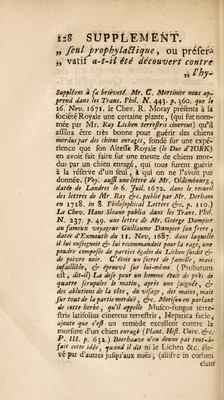 128 SUPPLEMENT.
„ seul prophylactique, ou préser-
„ vatif a-t-il été découvert contre
„ l'hy-
Suppléons à sa brièveté. Mr. C. Mortimer nous ap-
prend dans les Trans. Phil. N. 443. p. 360. que le
16. Nov. 1671. le Chev. R. Moray présenta à la
Société Royale une certaine plante, (qui fut nom-
mée par Mr. Ray Lichen terrestris cinereus) qu'il
assûra être très bonne pour guérir des chiens
mordus par des chiens enragés, fondé sur une expé-
rience que son Altesse Royale (le Duc d'YORK)
en avoit fait faire sur une meute de chiens mor-
dus par un chien enragé, qui tous furent guéris
à la réserve d'un seul, à qui on ne l'avoit pas
donnée. (Voy. aussi une lettre de Mr. Oldembourg,
datée de Londres le 6. Juil. 1672. dans le recueil
des lettres de Mr. Ray &c. publié par Mr. Derham
en 1718. in 8 Philosophical Letters &c. p. 110.)
Le Chev. Hans Sloane publia dans les Trans. Phil.
N. 237. p. 49. une lettre de Mr. George Dampier
au fameux voyageur Guillaume Dampier son frere,
datée d'Exmouth du 11. Nov. 1687. dans laquelle
il lui enseignoit & lui recommandoit pour la rage, une
poudre composée de parties égales du Lichen susdit &
de poivre noir. C'étoit un secret de famille, mais
infaillible, & éprouvé sur lui-même. (Probatum
est, dit-il) La dose pour un homme étoit de près de
quatre scrupules le matin, après une saignée, &
des ablutions de la tête, du visage, des mains, mais
sur tout de la partie mordue, &c. Morison en parlant
de cette herbe, qu'il appelle Musco-fungus terre-
stris latifolius cinereus terrestris, Hepatica facie,
ajoute que c'est un remède excellent contre la
morsure d'un chien enragé (Plant. Hist. Univ. &c.
P. III. p. 632.) Boerhaave n'en donne pas tout-à-
fait cette idée, quand il dit ni le Lichen &c. éle-
vé par d'autres jusqu'aux nuës, (aliisve in cœlum
elato